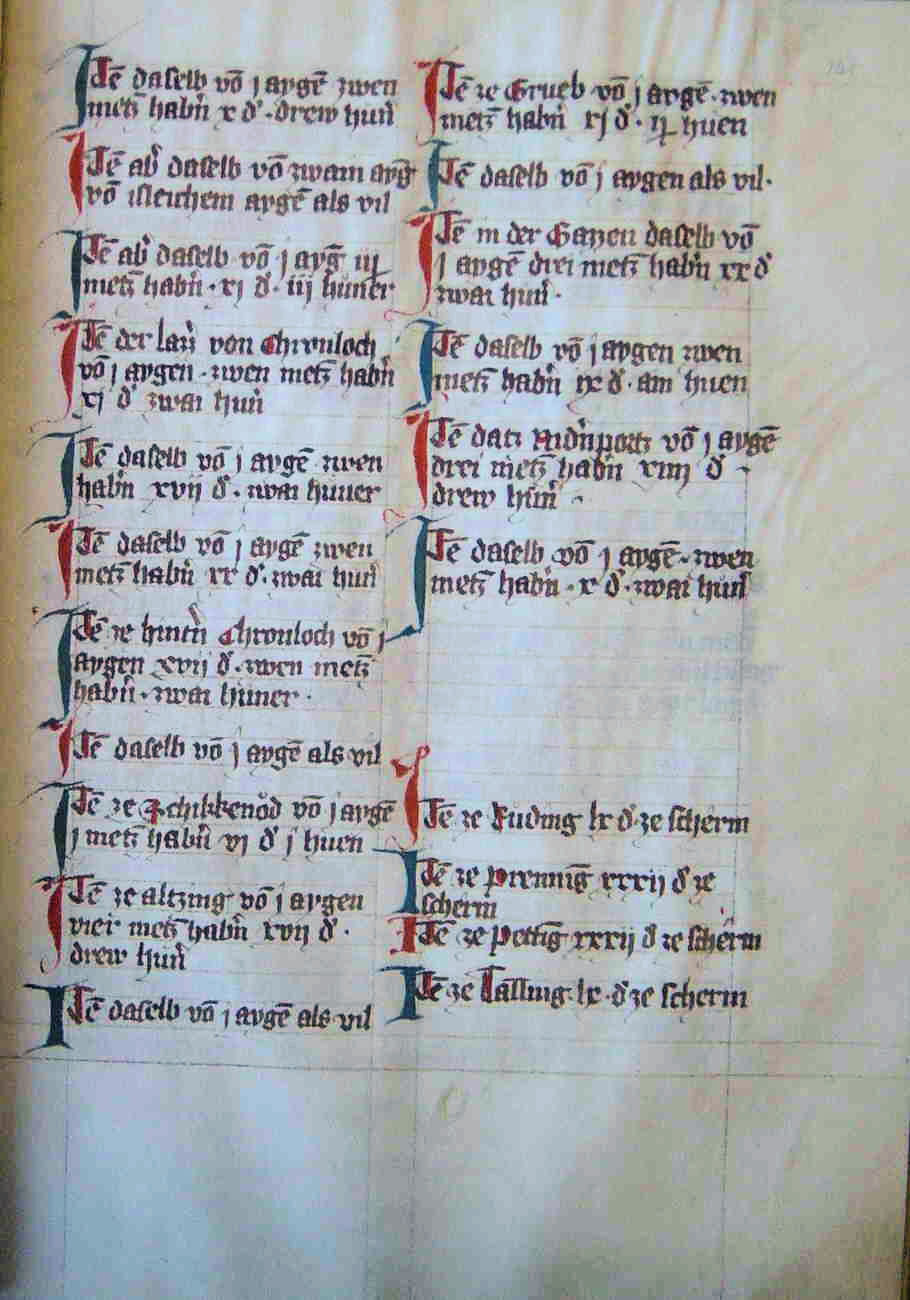 Itē daselb vō j aygē zwen
metz̄ habn̄ x d᷎ · drew hun̄
Itē ab̄ daselb vō zwain ayḡ
vō isleichem aygē als vil
Itē ab̄ daselb vō j ayḡ iij
metz̄ habn̄ · xj d᷎ · iij huner
Itē der von Chronloch
vō j aygen · zwen metz̄ habn̄
xj d᷎ zwai hun̄
Itē daselb vō j aygē zwen
habn̄ xvij d᷎ · zwai huner
Itē daselb vō j aygē zwen
metz̄ habn̄ xx d᷎ · zwai hun̄
Itē ze hintn̄ Chronloch vō j
aygen xvij d᷎ · zwen metz̄
habn̄ · zwai huner ·
Itē daselb vō j aygē als vil
Itē ze vō j aygē
j metz̄ habn̄ vj d᷎ j huen
Itē ze altzing vō j aygen
vier metz̄ habn̄ xvij d᷎ ·
drew hun̄
Itē daselb vō j aygē als vil
Itē ze Grueb vō j aygē · zwen
metz̄ habn̄ xj d᷎ · huen
Itē daselb vō j aygen als vil ·
Itē in der daselb vō
j aygē drei metz̄ habn̄ xx d᷎
zwai hun̄ ·
Itē daselb vō j aygen zwen
metz̄ habn̄ ix d᷎ · ain huen
Itē datz vō j aygē
drei metz̄ habn̄ xiiij d᷎ ·
drew hun̄ ·
Itē daselb vō j aygē · zwen
metz̄ habn̄ · x d᷎ · zwai hun̄
Itē ze Fuding lx d᷎ ze scherm
Itē ze prenniḡ xxxij d᷎ ze
scherm
Itē ze pettiḡ xxxij d᷎ ze scherm
Itē ze lx · d᷎ ze scherm